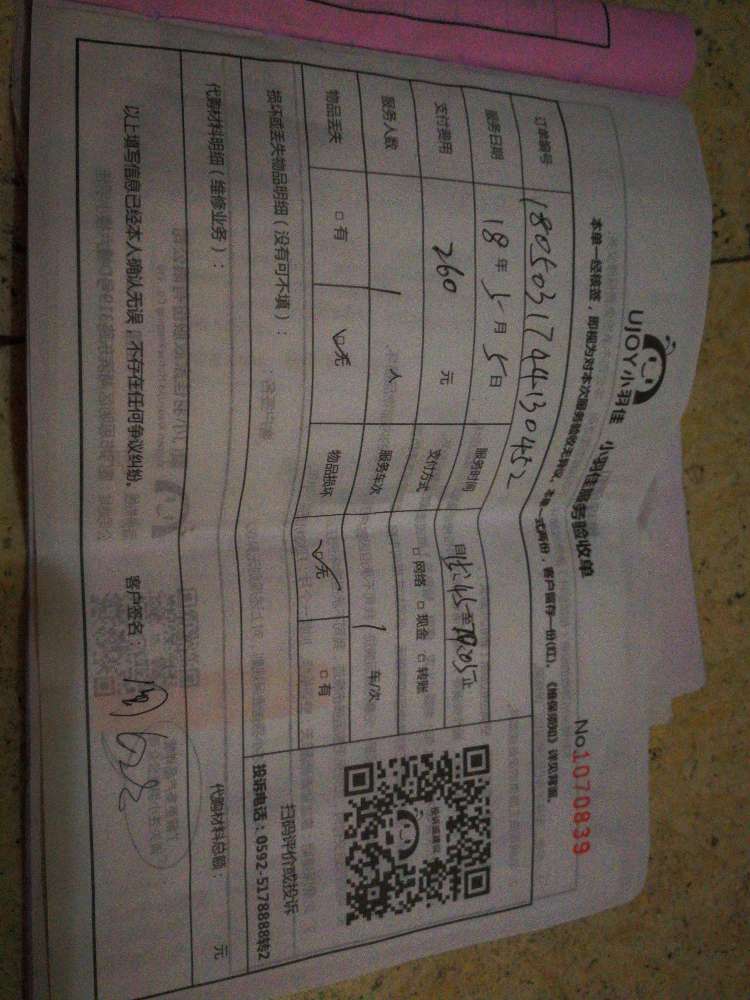 UJOY小羽佳
小羽佳服务验收单
No.1070839
本单一经核签，即视为对本次服务验收无异议，本单一式两份，客户留存一份(红)，《维保须知》详见背面。
订单编号 1805031744130452
服务日期 18年5月5日 服务时间 自 至 止
支付费用 260 元 支付方式 □网络 □现金 □转账
服务人数 1 人 服务车次 1 车/次
物品丢失 □有 ☑无 物品损坏 ☑无 □有
损坏或丢失物品明细（没有可不填）：
扫码评价或投诉
投诉电话：0592-5178888转2
代购材料明细（维修业务）： 代购材料总额： 元
以上填写信息已经本人确认无误，不存在任何争议纠纷. 客户签名：